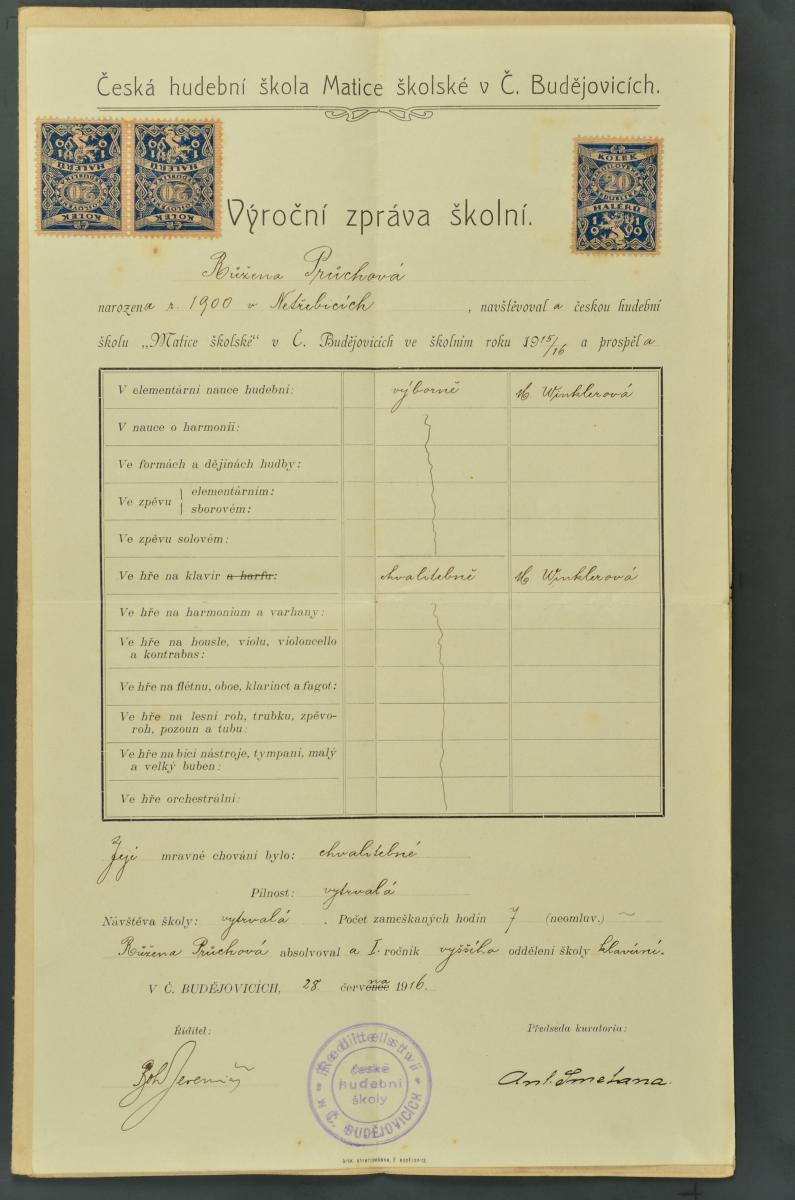 Česká hudební škola Matice školské v Č. Budějovicích.
KOLEK
20
HALÉŘŮ
1919
KOLEK
20
HALÉŘŮ
1919
KOLEK
20
HALÉŘŮ
1919
Výroční zpráva školní.
Růžena Průchová
narozena r. 1900 v Netřebicích, navštěvoval a českou hudební
školu „Matice školské“ v Č. Budějovicích ve školním roku 1915/16 a prospěl a
V elementární nauce hudební: výborně M. Winklerová
V nauce o harmonii:
Ve formách a dějinách hudby:
Ve zpěvu elementárním:
sborovém:
Ve zpěvu solovém:
Ve hře na klavír a harfu: chvalitebně M. Winklerová
Ve hře na harmonium a varhany:
Ve hře na housle, violu, violoncello
a kontrabas:
Ve hře na flétnu, oboe, klarinet a fagot:
Ve hře na lesní roh, trubku, zpěvo-
roh, pozoun a tubu:
Ve hře na bicí nástroje, tympani, malý
a velký buben:
Ve hře orchestrální:
Její mravné chování bylo: chvalitebné
Pilnost: vytrvalá
Návštěva školy: vytrvalá. Počet zameškaných hodin 7 (neomluv.) ~
Růžena Průchová absolvoval a I. ročník vyššího oddělení školy klavírní.
V Č. BUDĚJOVICÍCH, 28. června 1916.
Ředitel:
Předseda kuratoria:
Boh Jeremiáš
Ant. Smetana.
Ředitelství
české
hudební
školy
Č. BUDĚJOVICÍCH